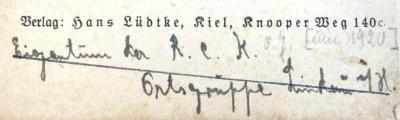 Verlag: Hans Lüdtke, Kiel, Knooper Weg 140c.
Eigentum der K. C. K. o.J. [um 1920]
Ortsgruppe